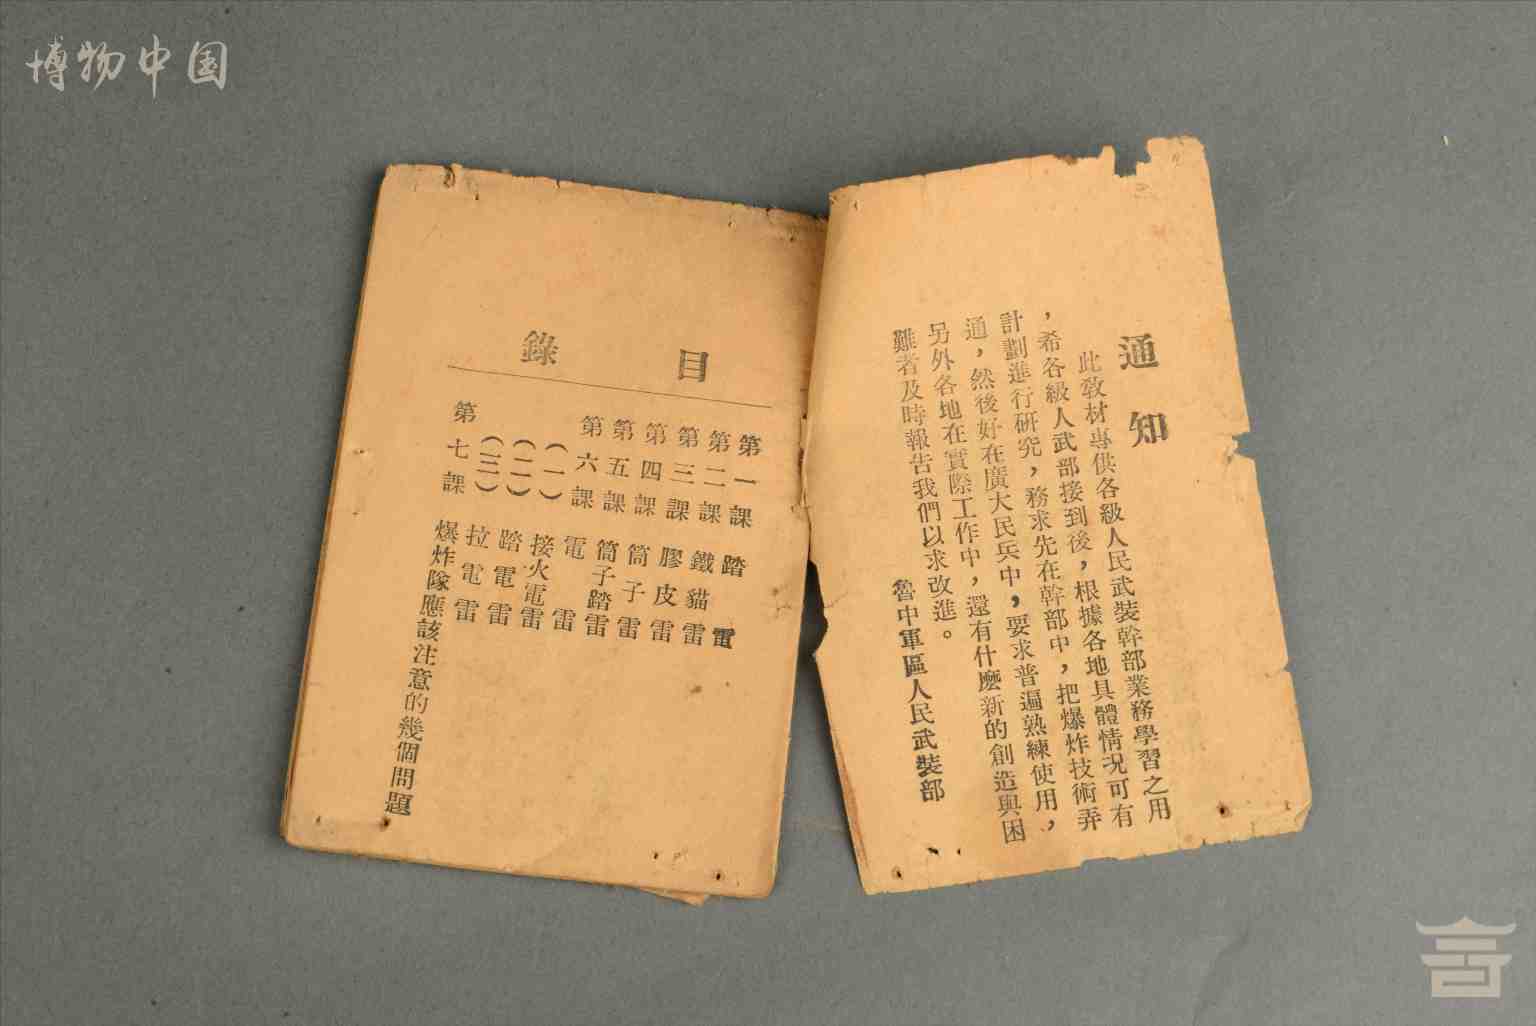 博物中国
通知
此教材專供各級人民武裝幹部業務學習之用
，希各級人武部接到後，根據各地具體情况可有
計劃進行研究，務求先在幹部中，把爆炸技術弄
通，然後好在廣大民兵中，要求普遍熟練使用，
另外各地在實際工作中，還有什麽新的創造與困
難者及時報告我們以求改進。
魯中軍區人民武裝部
目錄
第一課　踏雷
第二課　鐵貓雷
第三課　膠皮雷
第四課　筒子雷
第五課　筒子踏雷
第六課　電雷
（一）接火電雷
（二）踏電雷
（三）拉電雷
第七課　爆炸隊應該注意的幾個問題